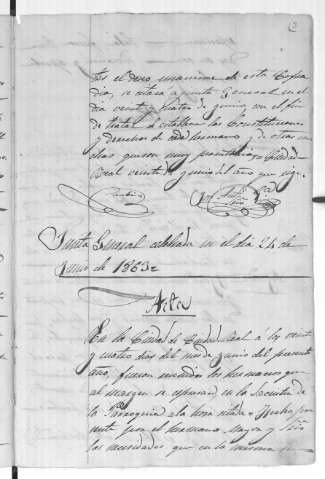 2
tro el deseo unanime de esta Cofra
dia, se citara a junta General en el
dia veinte y cuatro de junio con el fin
de tratar establecer las Constituciones
y derechos de cada hermano y de otras
cosas que son muy Ciudad
Real veinte de junio del año que rige.
Junta General celebrada en el dia 24 de
Junio de 1863
Acta
En la Ciudad de Ciudad Real a los veinte
y cuatro dias del mes de junio del presente
año, fueron reunidos los hermanos que
al margen se espresan en la Sacristia de
la Parroquia a la hora citada y hecho pre
sente por el hermano mayor y Srio
las necesidades que en la misma